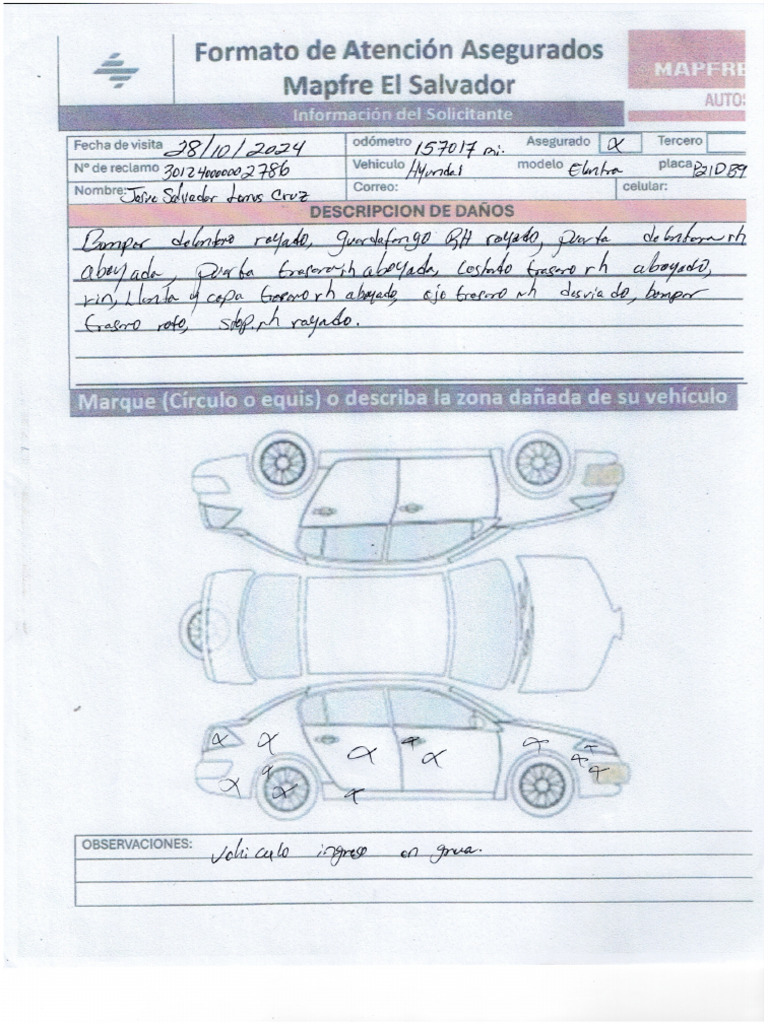 Formato de Atención Asegurados
Mapfre El Salvador
MAPFRE
AUTOS
Información del Solicitante
Fecha de visita 28/10/2024 odómetro 157017 mi. Asegurado X Tercero
N° de reclamo 30124000002786 Vehiculo Hyundai modelo Elantra placa
Nombre: Salvador Cruz Correo: celular:
DESCRIPCION DE DAÑOS
Bomper delantero rayado, guardafango RH rayado, puerta delantera rh
aboyada, puerta trasera rh aboyada, costado trasero rh aboyado,
rin, llanta y copa trasero rh aboyado, eje trasero rh desviado, bomper
trasero roto, stop rh rayado.
Marque (Círculo o equis) o describa la zona dañada de su vehículo
OBSERVACIONES: Vehiculo ingreso en grua.